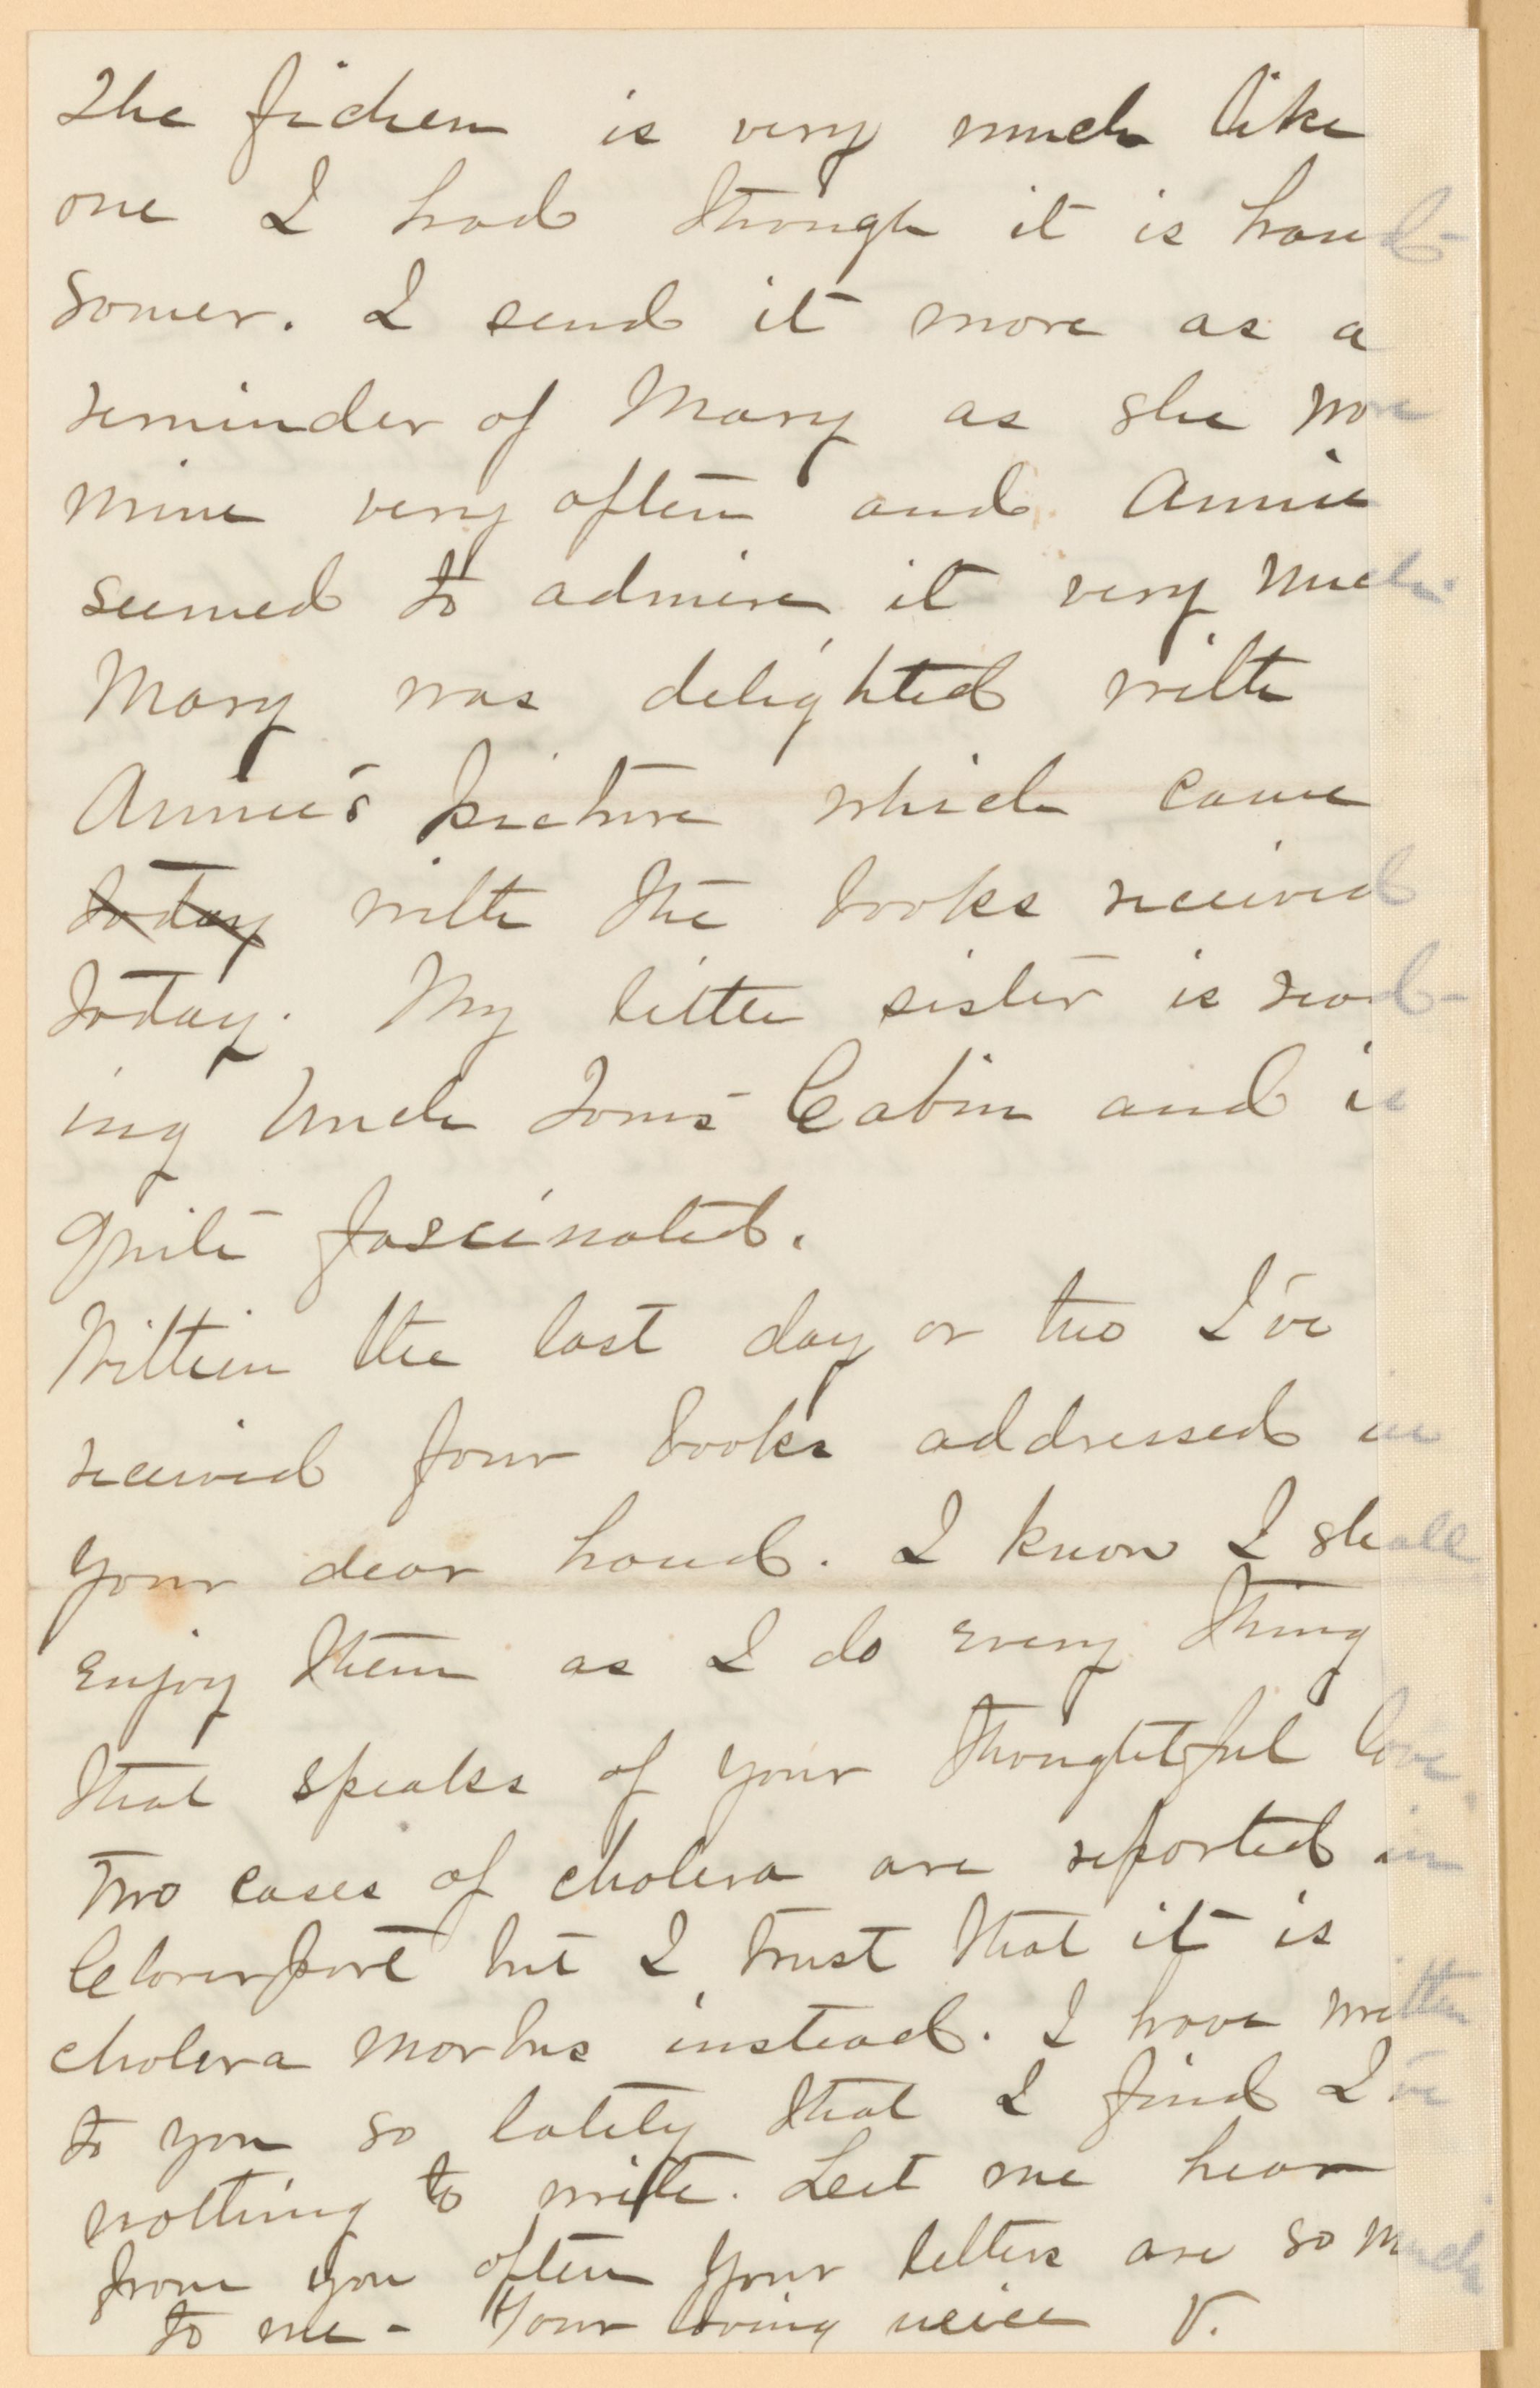 The fichew is very much like
one I had though it is hand-
somer. I send it more as a
reminder of Mary as she wore
mine very often and Annie
seemed to admire it very much
Mary was delighted with
Annie's picture which came
today with the books received
today. My little sister is read-
ing Uncle Toms Cabin and is
quite fascinated.
Within the last day or two I've
received four books addressed in
your dear hand. I know I shall
enjoy them as I do every thing
that speaks of your thoughtful love.
Two cases of cholera are reported in
Cloverport but I trust that it is
cholera morbus instead. I have written
to you so lately that I find I've
nothing to write. Let me hear
from you often your letters are so much
to me - Your loving neice V.